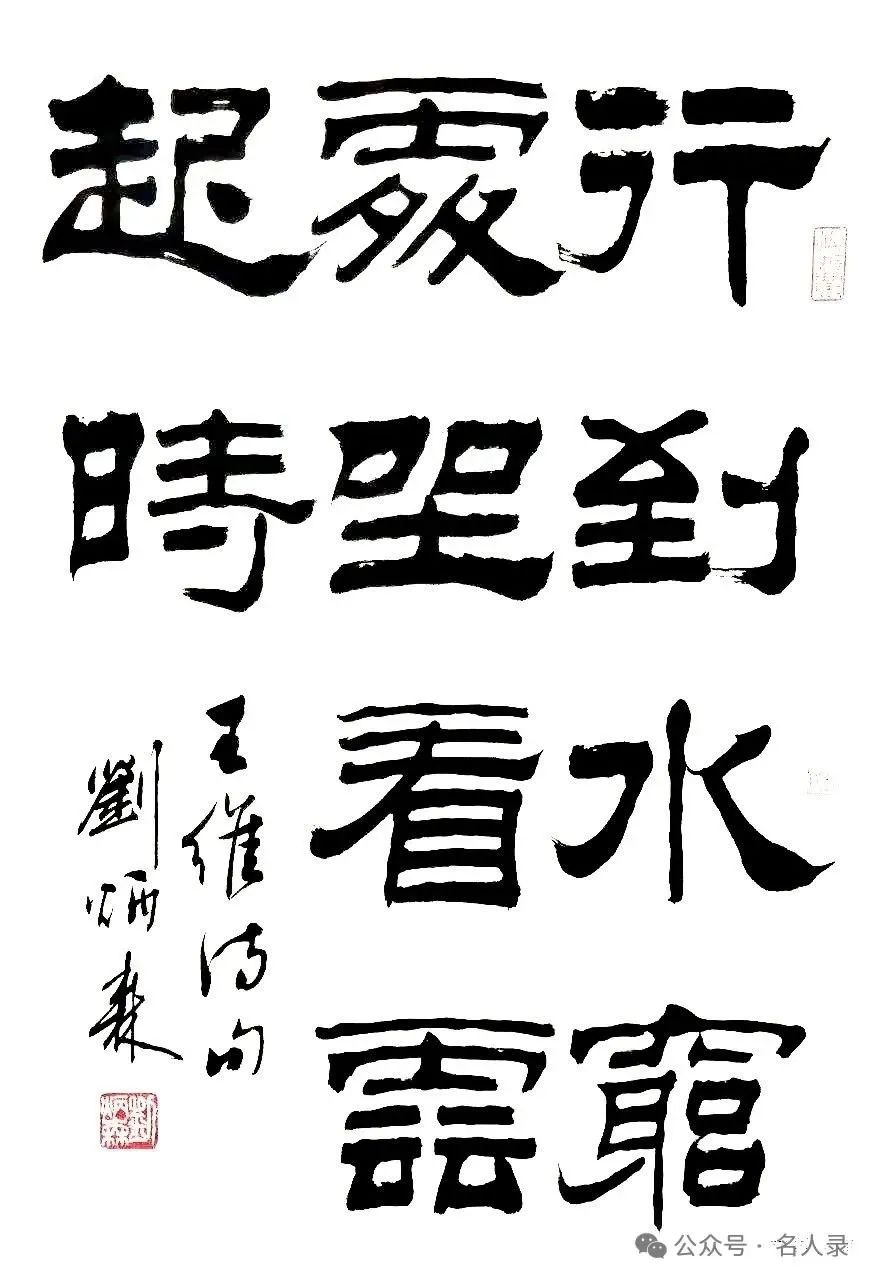 行到水窮
處坐看雲
起時
王維詩句
劉炳森
劉炳森
公众号·名人录